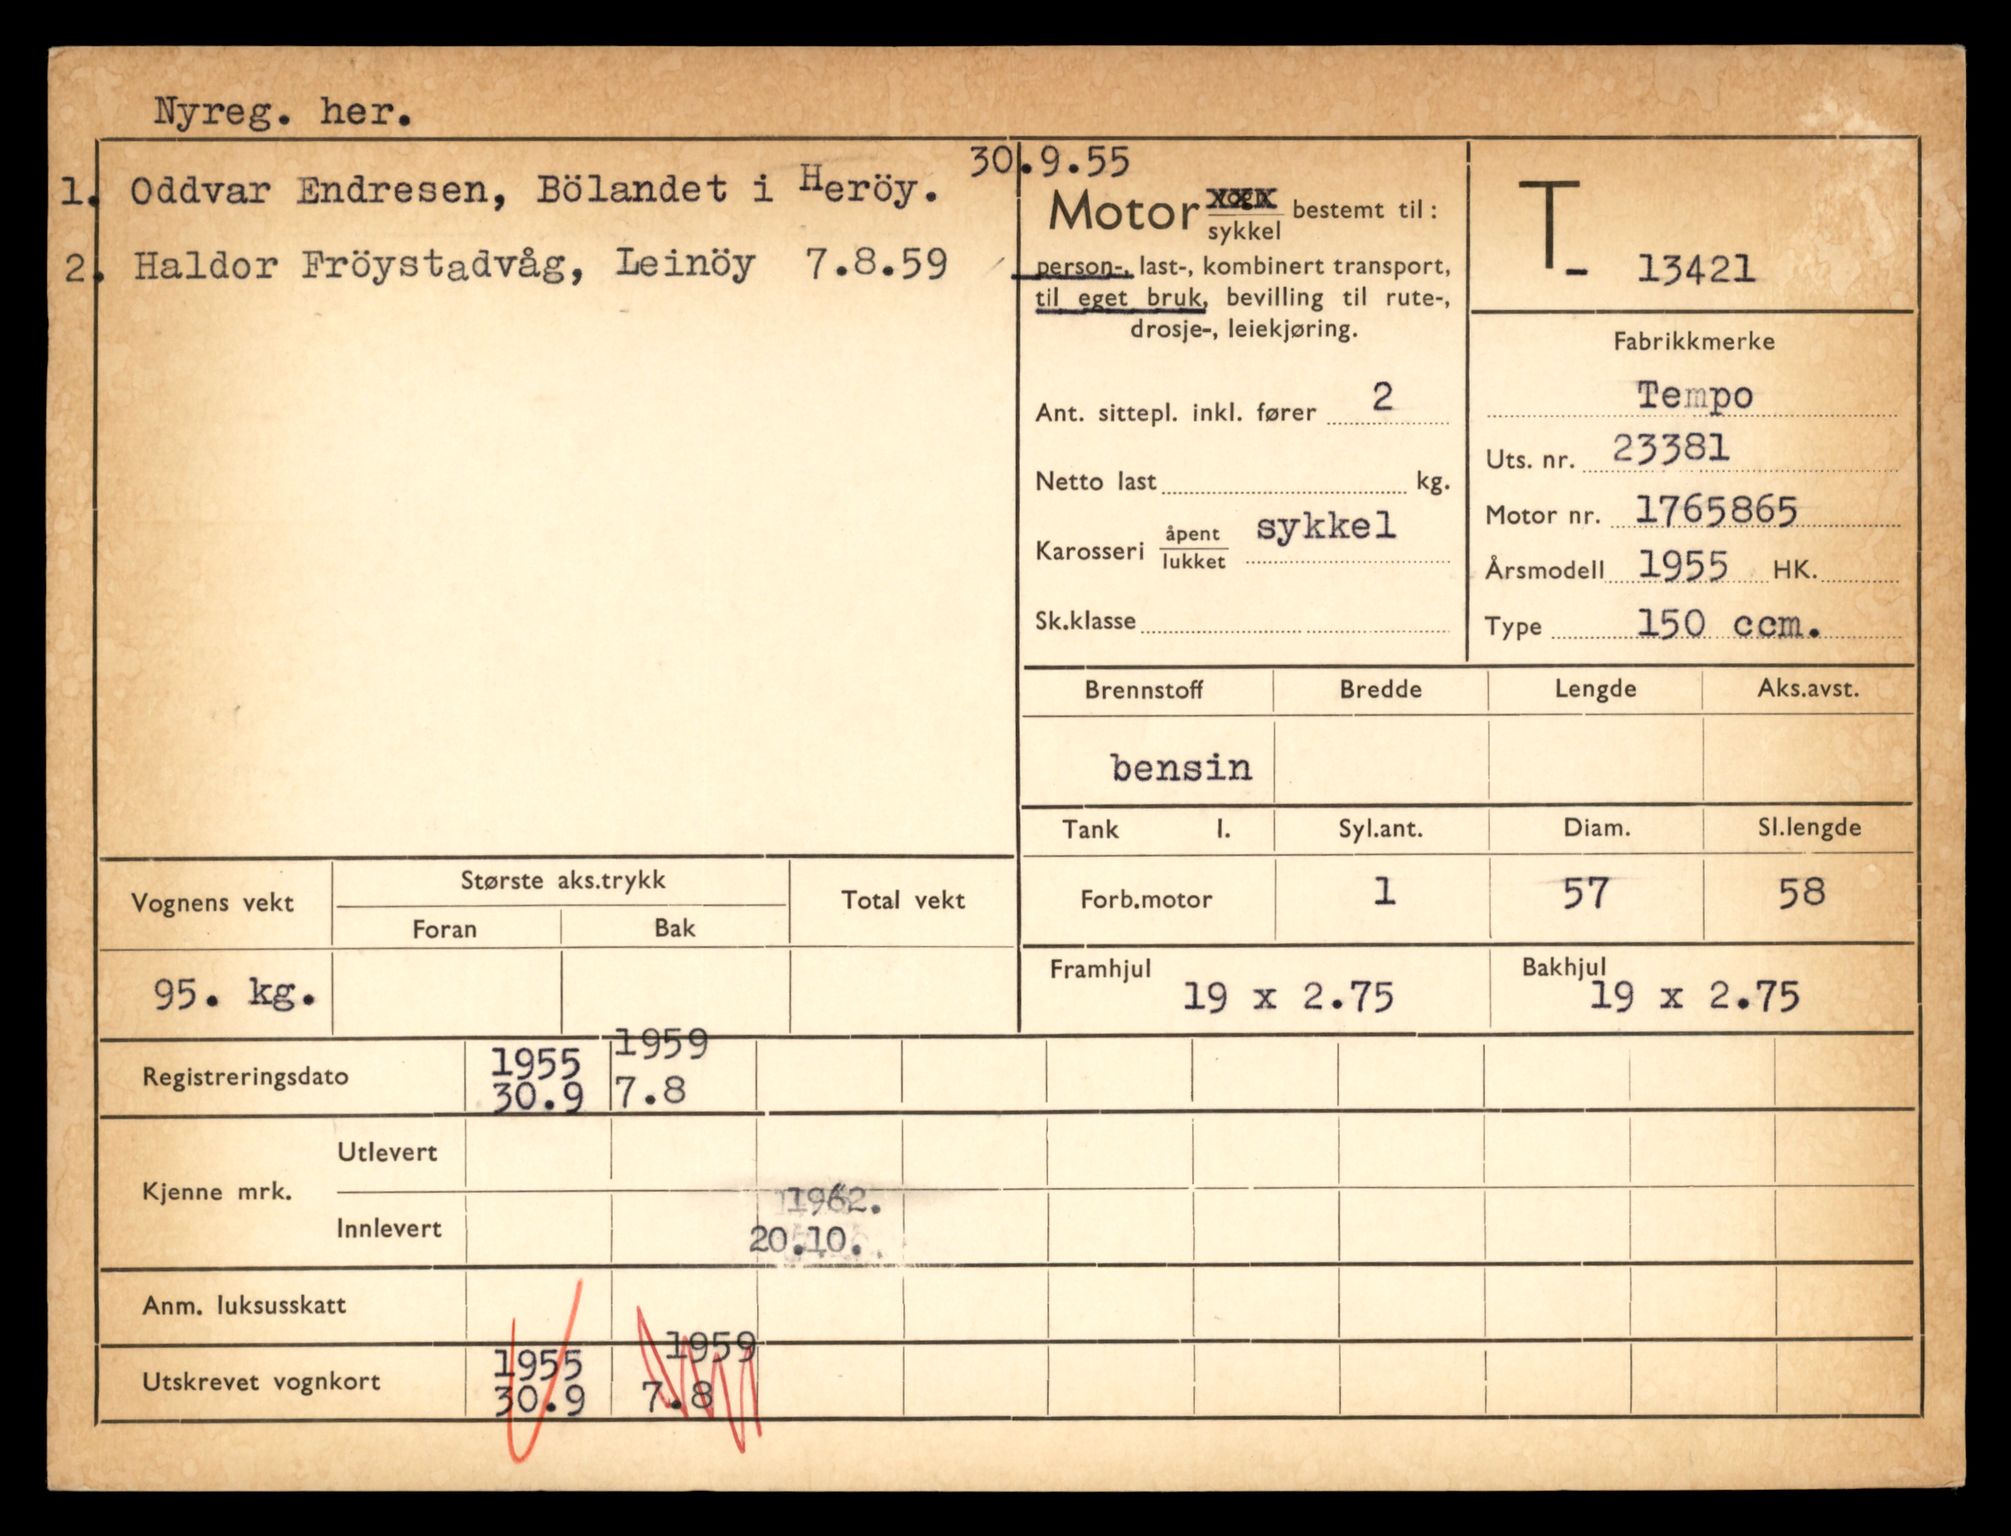 Nyreg. her.
1. Oddvar Endresen, Bölandet i Heröy. 30.9.55
2. Haldor Fröystadvåg, Leinöy 7.8.59
Motor vogn / sykkel bestemt til:
person-, last-, kombinert transport,
til eget bruk, bevilling til rute-,
drosje-, leiekjøring.
Ant. sittepl. inkl. fører 2
Netto last kg.
Karosseri åpent / lukket sykkel
Sk.klasse
T- 13421
Fabrikkmerke
Tempo
Uts. nr. 23381
Motor nr. 1765865
Årsmodell 1955 HK.
Type 150 ccm.
Brennstoff Bredde Lengde Aks.avst.
bensin
Tank l. Syl.ant. Diam. Sl.lengde
Forb.motor 1 57 58
Framhjul 19 x 2.75 Bakhjul 19 x 2.75
Vognens vekt Største aks.trykk Total vekt
Foran Bak
95. kg.
Registreringsdato 1955 1959
30.9 7.8
Kjenne mrk. Utlevert
Innlevert 1962.
20.10.
Anm. luksusskatt
Utskrevet vognkort 1955 1959
30.9 7.8